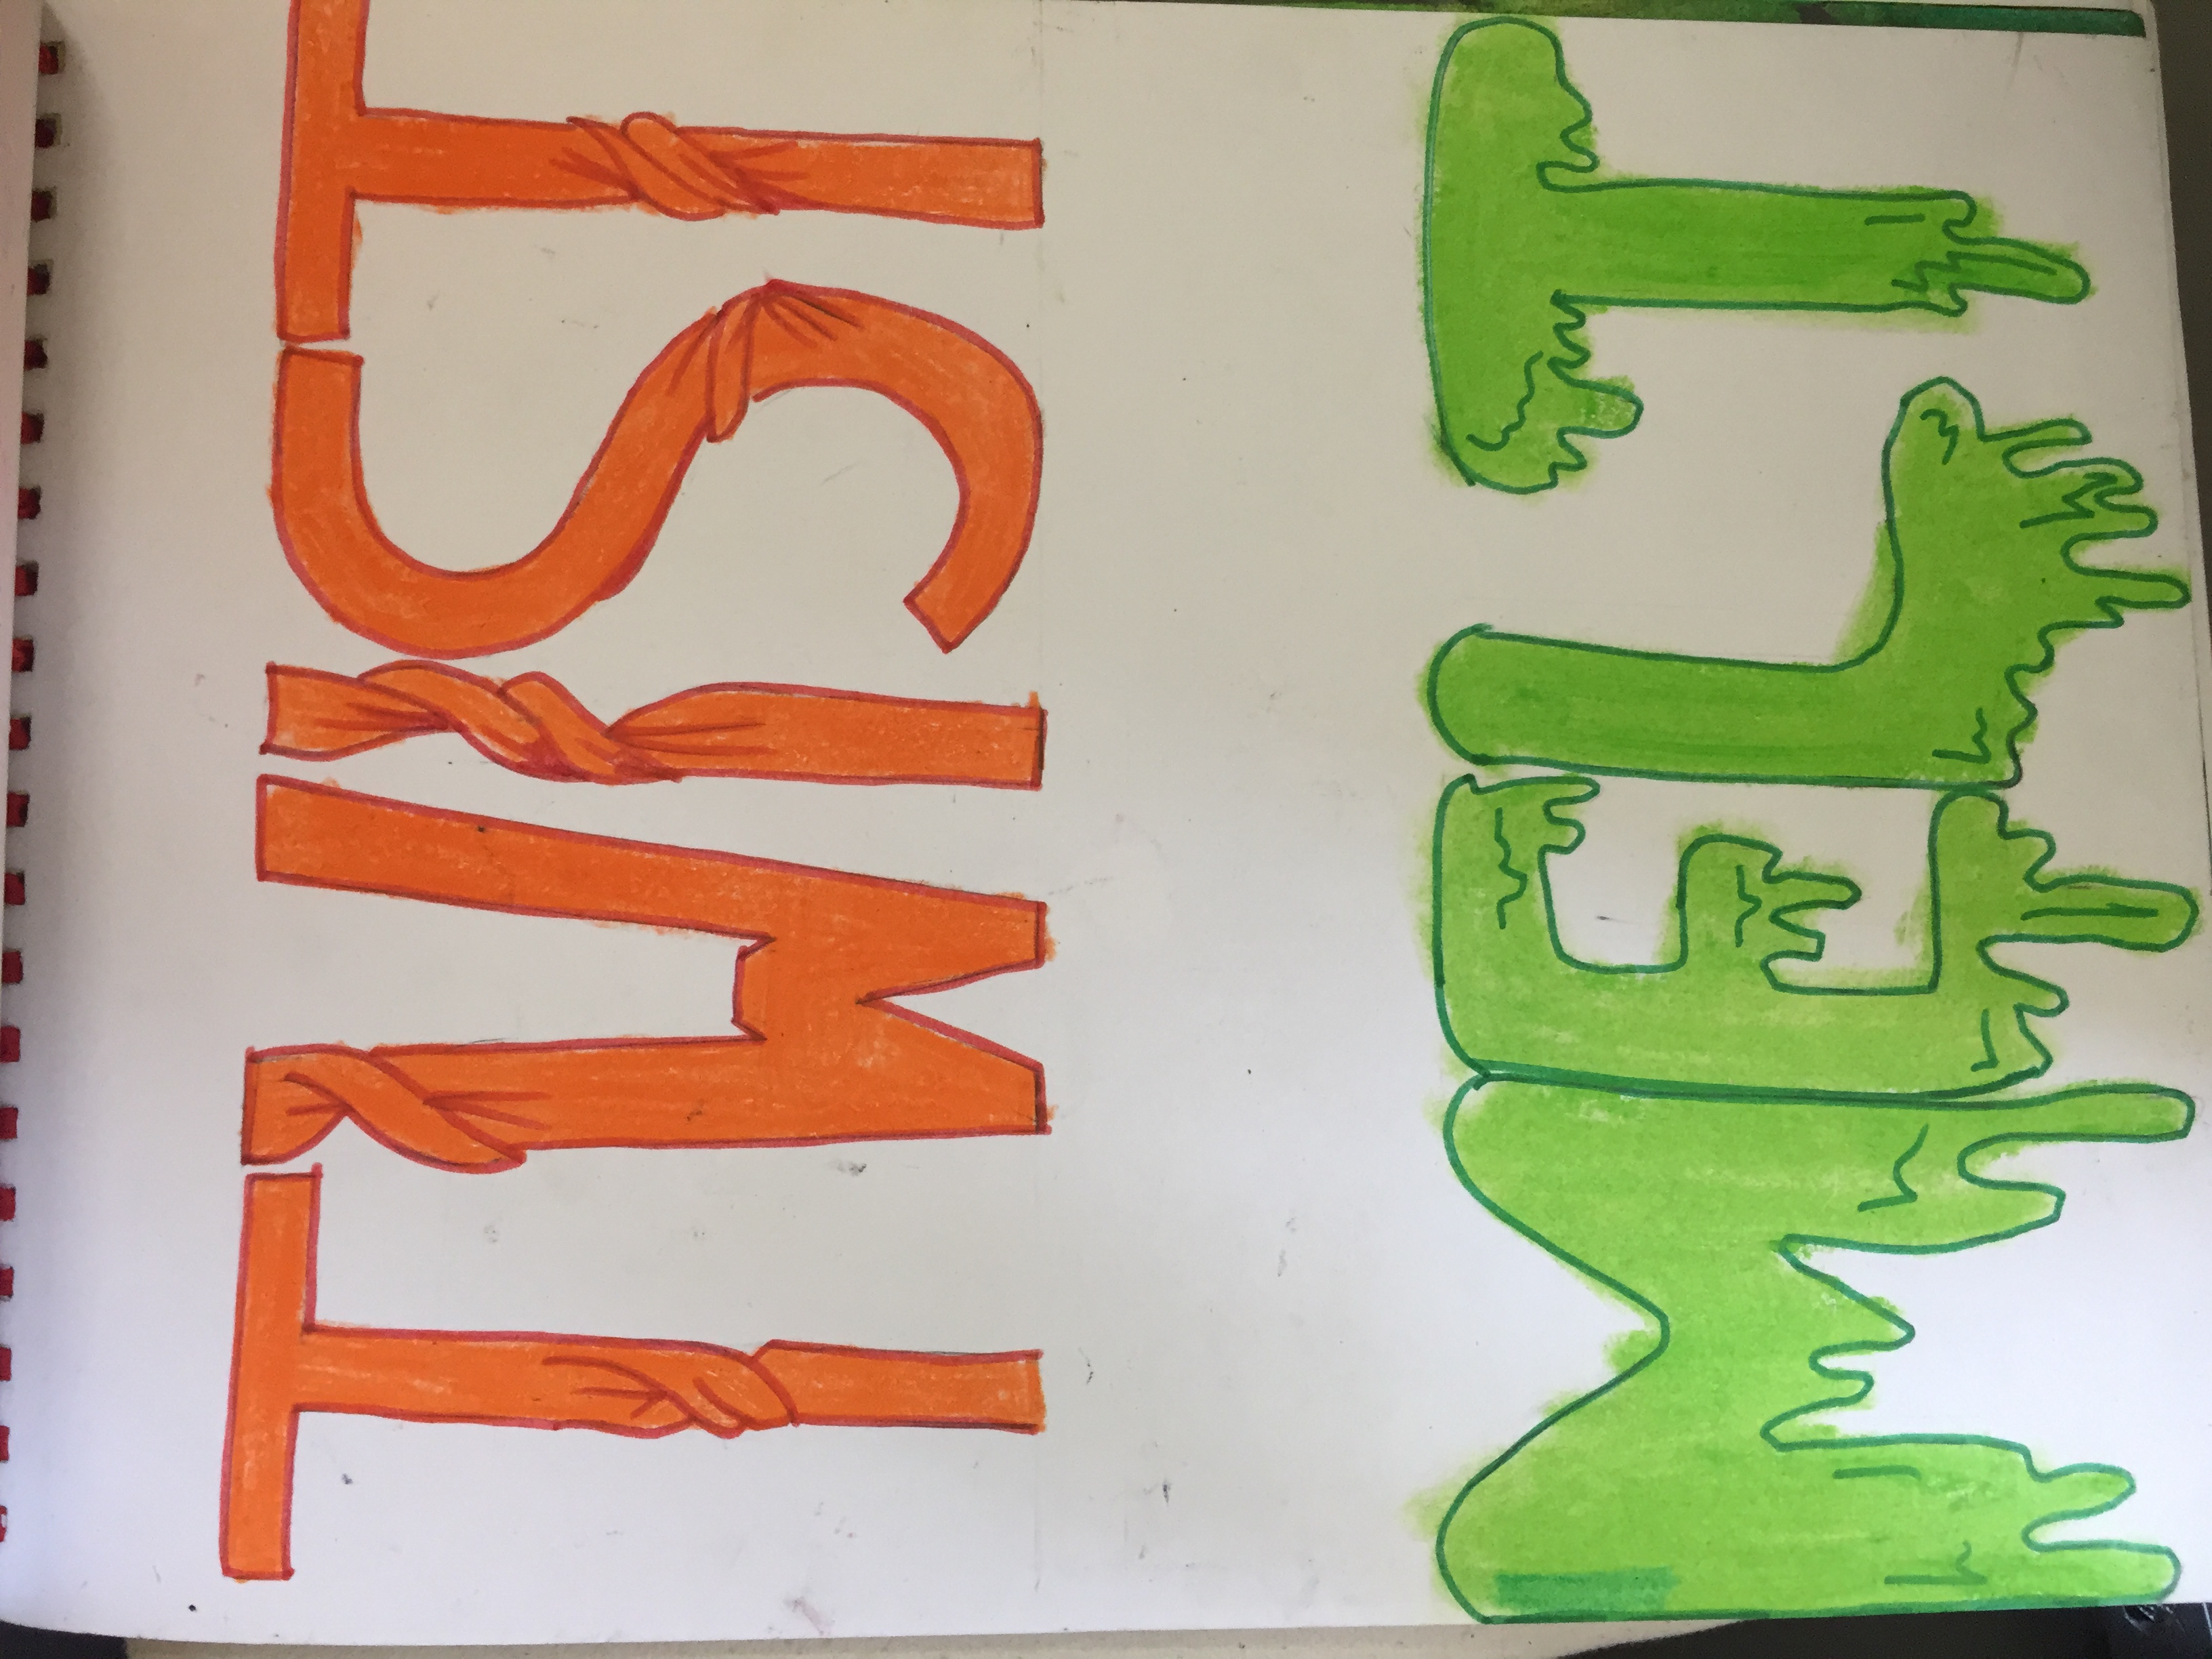 TWIST
MELT